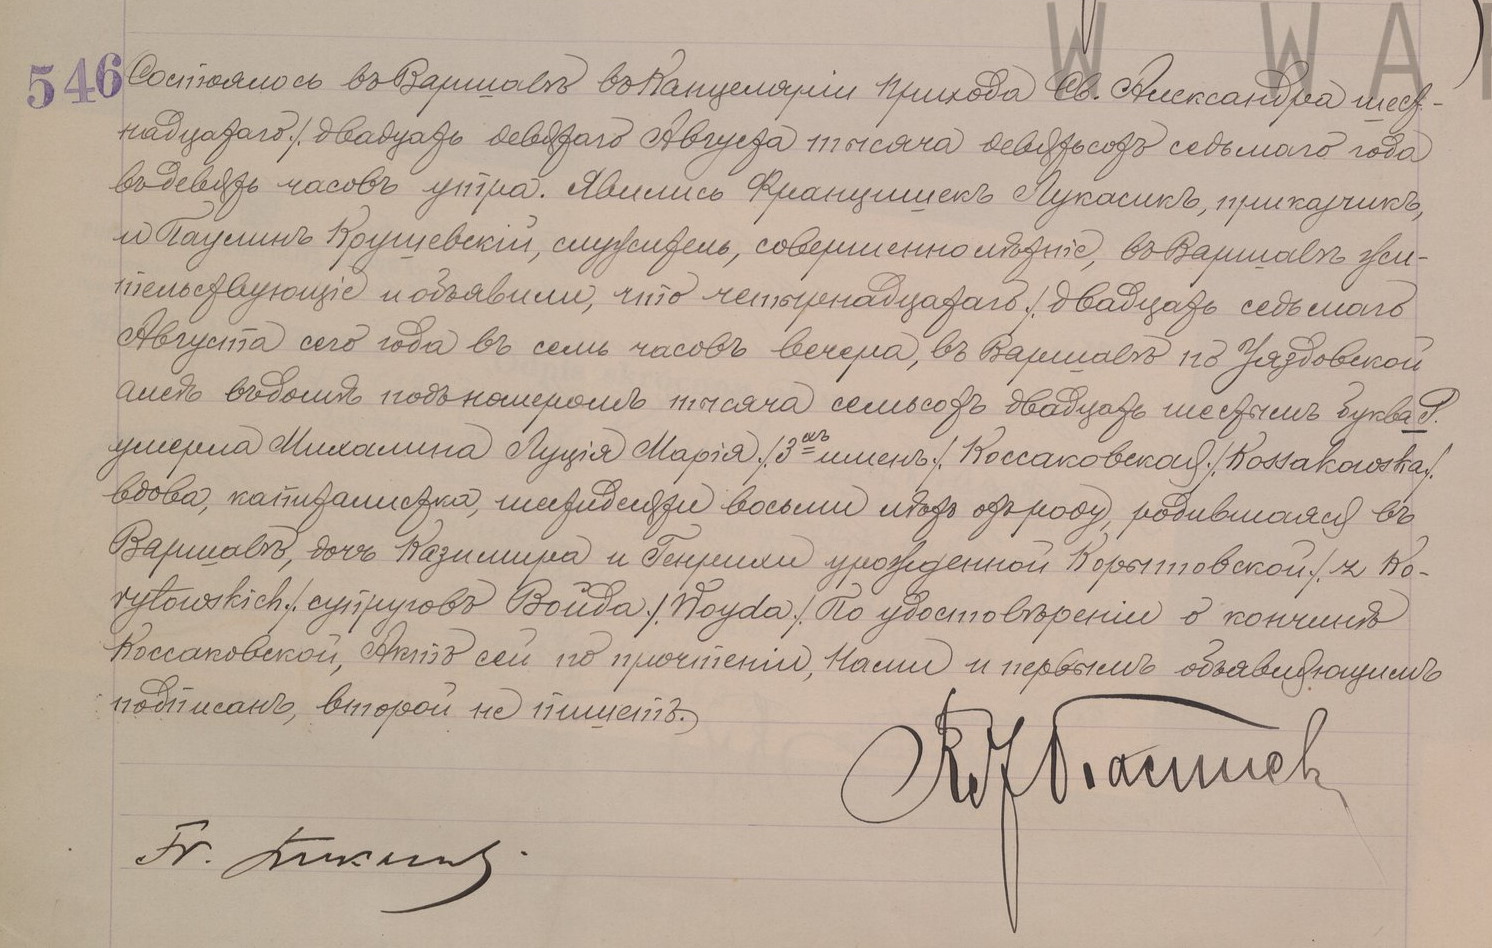 W WA
546 Состоялось въ Варшавѣ въ Канцеляріи Прихода Св. Александра шест-
надцатаго / двадцать девятаго Августа тысяча девятьсотъ седьмаго года
въ девять часовъ утра. Явились Францишекъ Лукасикъ, приказчикъ,
и Паулинъ Крушевскій, служитель, совершеннолѣтніе, въ Варшавѣ жи-
тельствующіе и объявили, что четырнадцатаго / двадцать седьмаго
Августа сего года въ семь часовъ вечера, въ Варшавѣ по Уяздовской
алеѣ въ домѣ подъ номеромъ тысяча семьсотъ двадцать шестымъ буква P.
умерла Михалина Луція Марія / 3хъ именъ / Коссаковская / Kossakowska /
вдова, капиталистка, шестидесяти восьми лѣтъ отъ роду, родившаяся въ
Варшавѣ, дочь Казимира и Генрики урожденной Корытовской / z Ko-
rytowskich / супруговъ Война / Woyda / По удостовѣреніи о кончинѣ
Коссаковской, Актъ сей по прочтеніи, Нами и первымъ объявляющимъ
подписанъ, второй не пишетъ.
Fr.